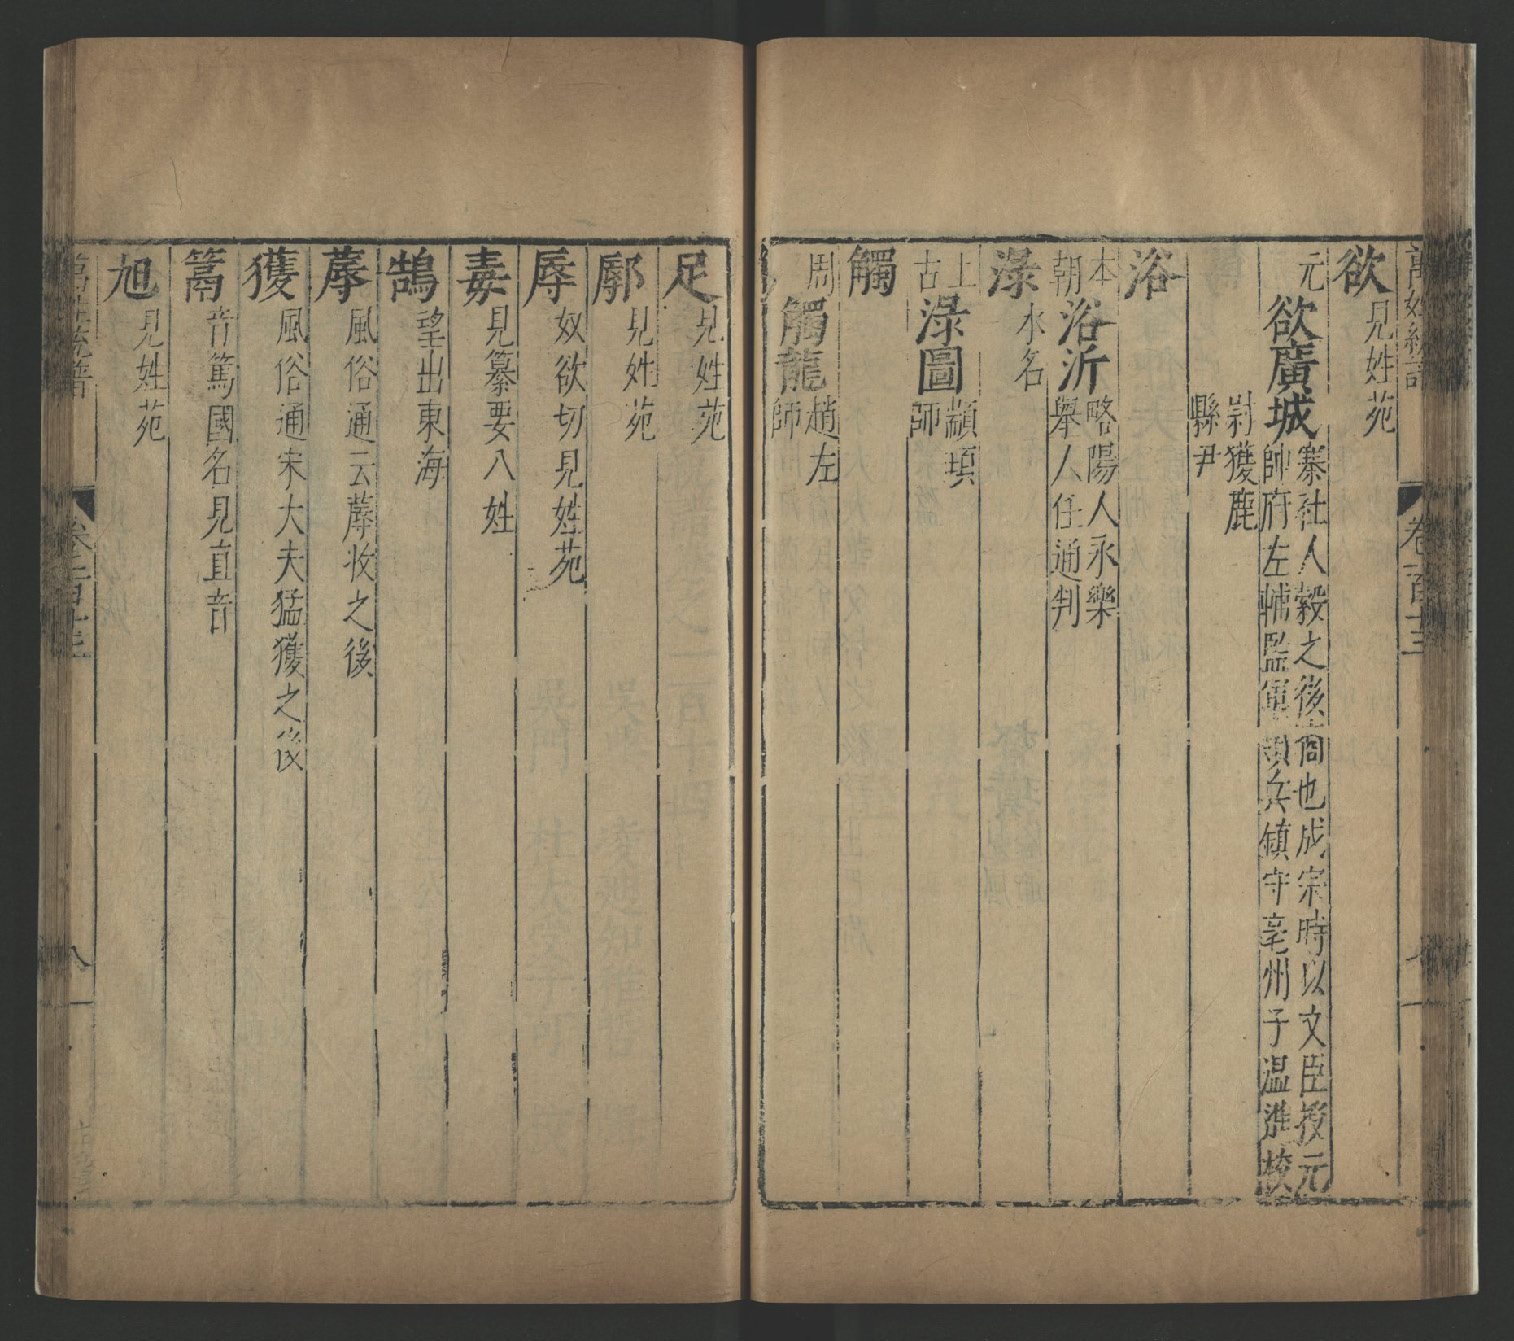 萬姓統譜
卷一百十三
欲 見姓苑
元
欲廣城 寨社人穀之後裔也成宗時以文臣授元
帥府左輔監軍領兵鎮守亳州子温進校
尉獲鹿
縣尹
浴
本朝
浴沂 略陽人永樂
舉人任通判
淥 水名
上古
淥圖 顓頊
師
觸
周
觸龍 趙左
師
足 見姓苑
鄏 見姓苑
辱 奴欲切見姓苑
毐 見纂要八姓
鵠 望出東海
蓐 風俗通云蓐收之後
獲 風俗通宋大夫猛獲之後
篙 音篤國名見直音
旭 見姓苑
萬姓統譜
卷一百十三
八